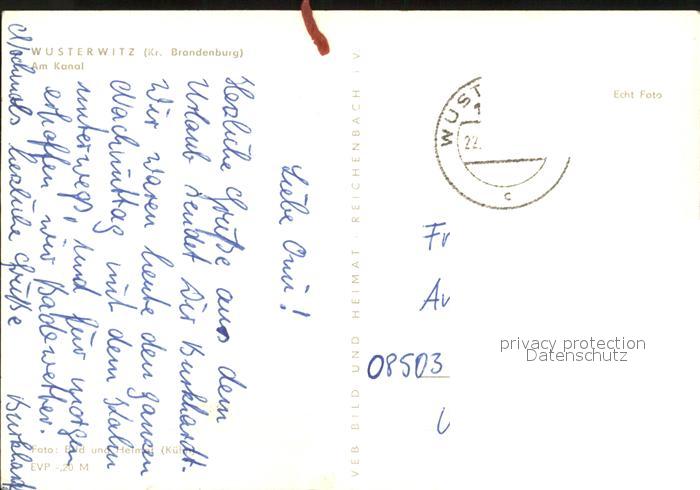 WUSTERWITZ (Kr. Brandenburg)
Am Kanal
Liebe Omi!
Herzliche Grüße aus dem
Urlaub sendet Dir Burkhardt.
Wir waren heute den ganzen
Nachmittag mit dem Kahn
unterwegs, und für morgen
erhoffen wir Badewetter.
Nochmals herzliche Grüße
Foto: Bild und Heimat (Kühn)
EVP -,20 M
VEB BILD UND HEIMAT · REICHENBACH i. V.
Echt Foto
WUST
22.
c
Fr
Av
08503
privacy protection
Datenschutz